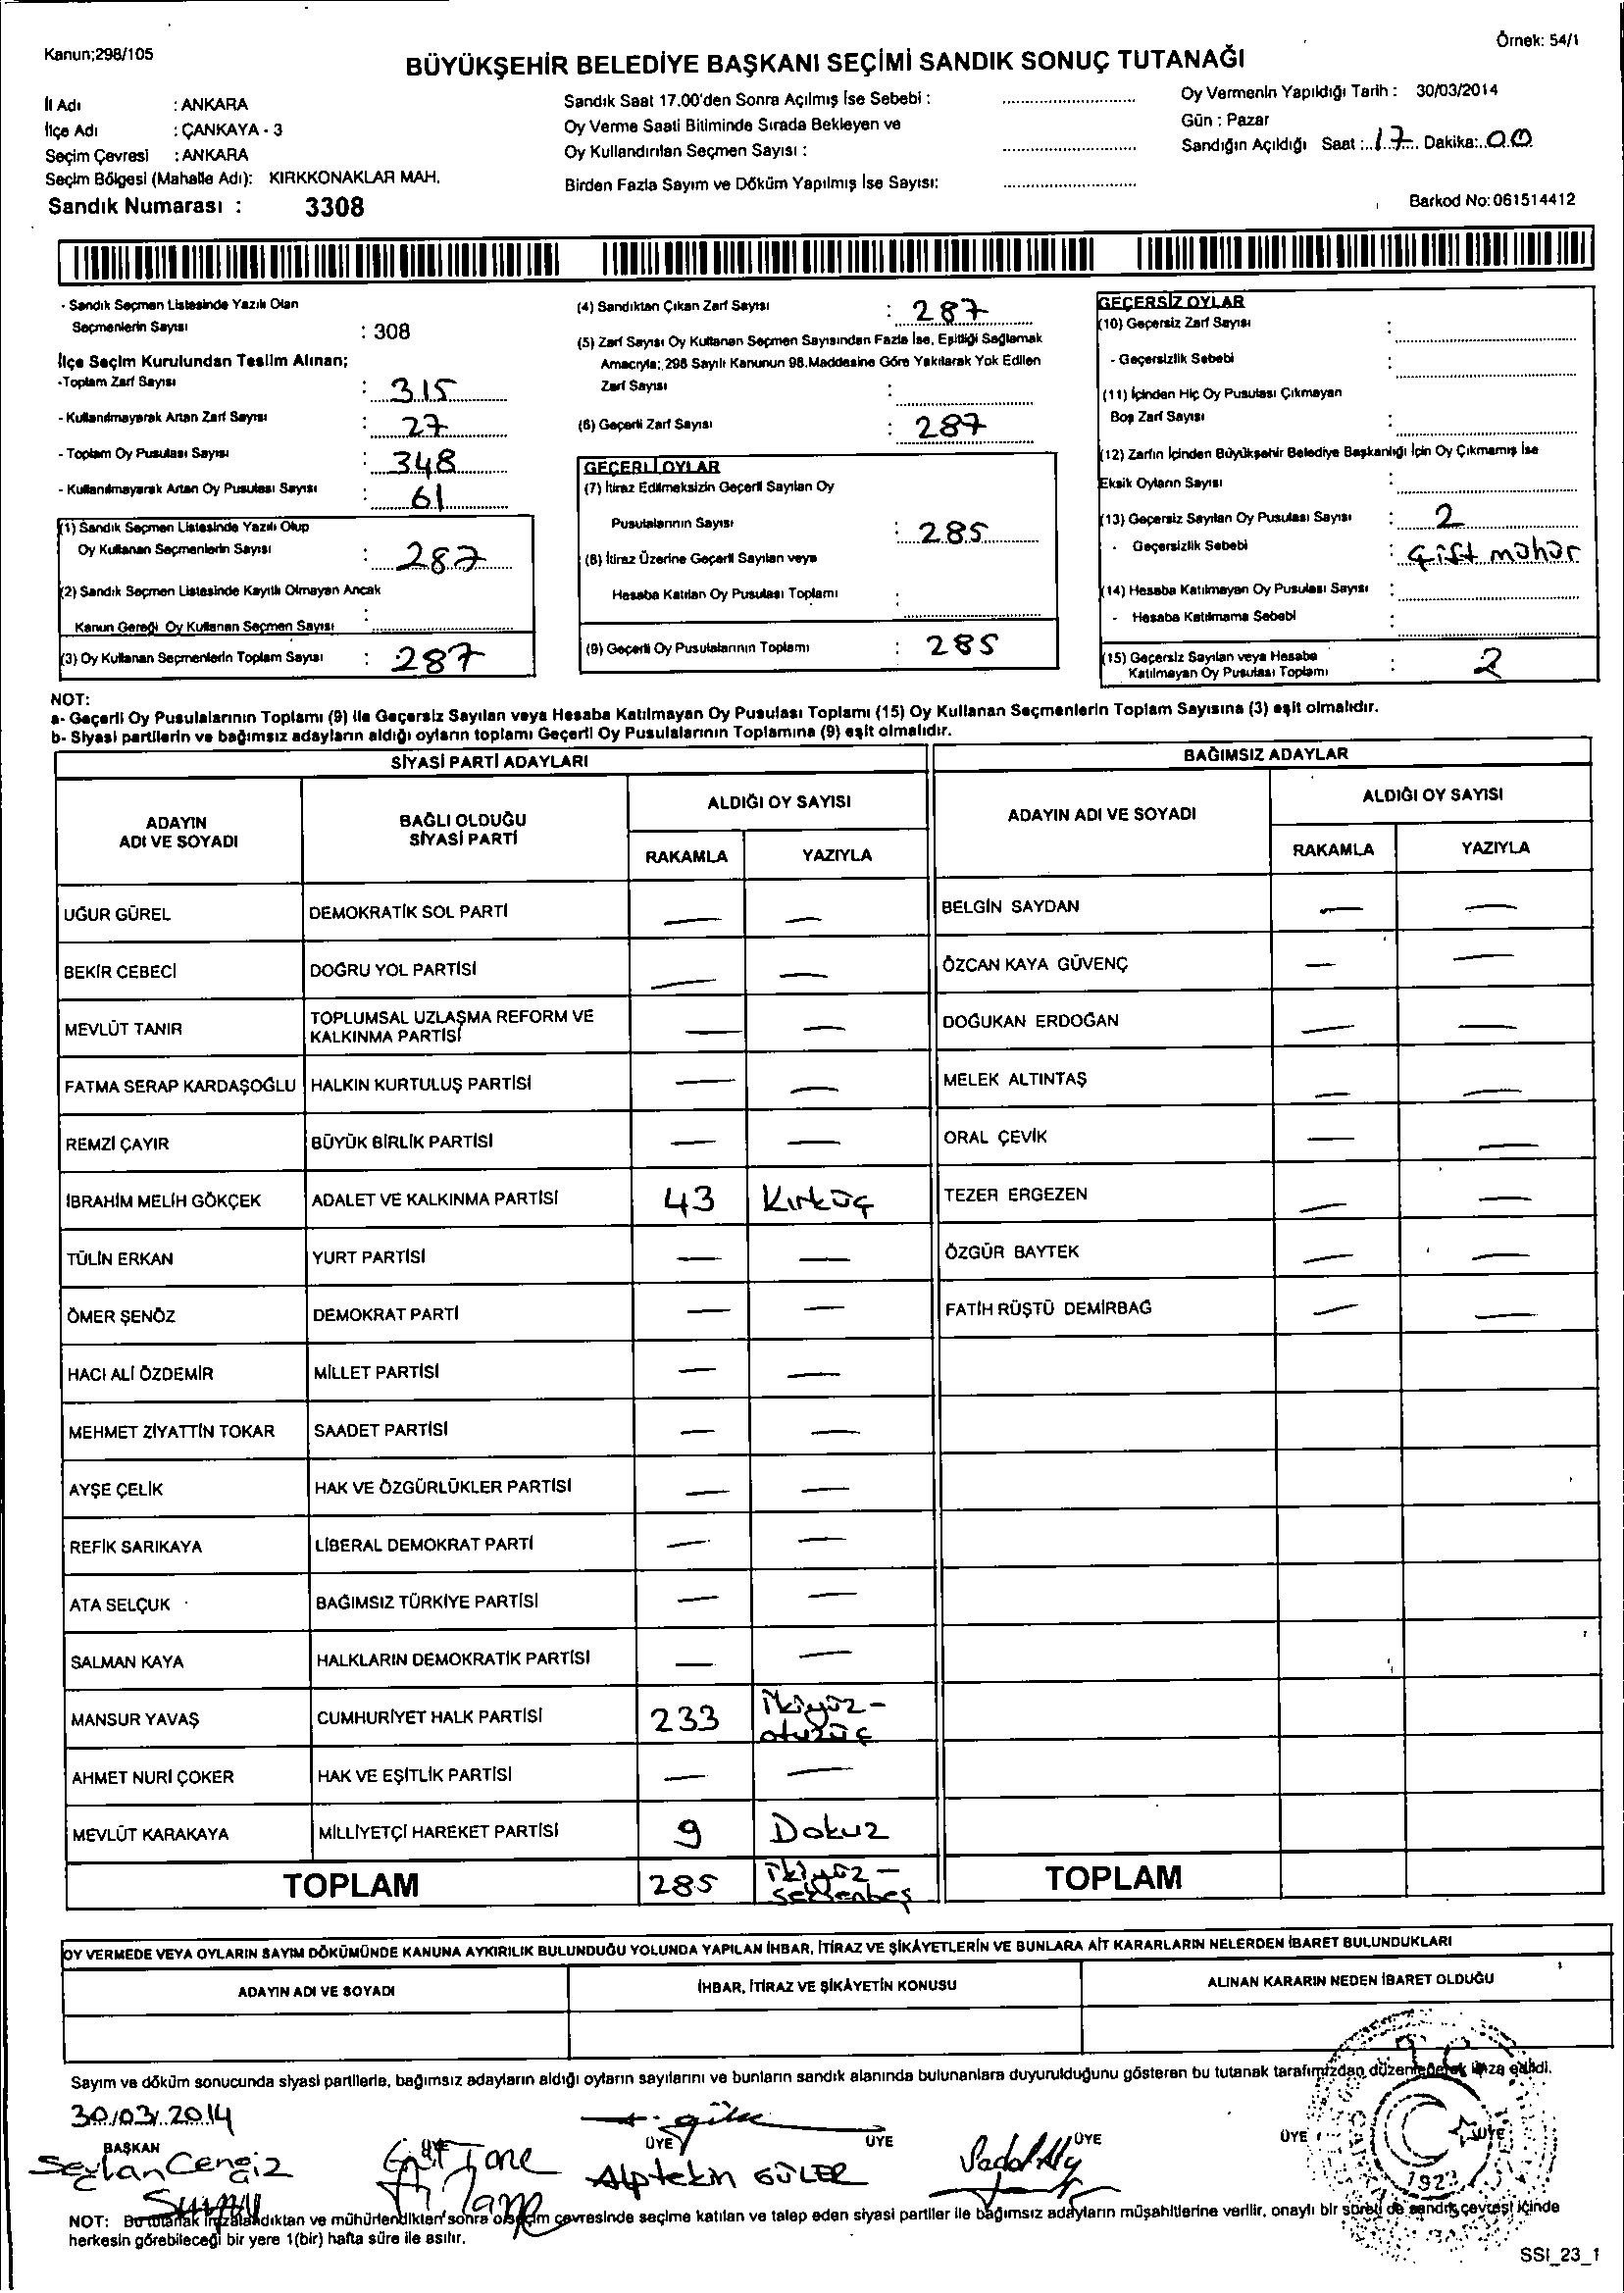 Kanun;298/105
Örnek: 54/1
BÜYÜKŞEHİR BELEDİYE BAŞKANI SEÇİMİ SANDIK SONUÇ TUTANAĞI
İl Adı : ANKARA
İlçe Adı : ÇANKAYA - 3
Seçim Çevresi : ANKARA
Seçim Bölgesi (Mahalle Adı): KIRKKONAKLAR MAH.
Sandık Numarası : 3308
Sandık Saat 17.00'den Sonra Açılmış İse Sebebi :
Oy Verme Saati Bitiminde Sırada Bekleyen ve
Oy Kullandırılan Seçmen Sayısı :
Birden Fazla Sayım ve Döküm Yapılmış İse Sayısı:
Oy Vermenin Yapıldığı Tarih : 30/03/2014
Gün : Pazar
Sandığın Açıldığı Saat : 17 Dakika: 00
Barkod No: 061514412
- Sandık Seçmen Listesinde Yazılı Olan
Seçmenlerin Sayısı : 308
İlçe Seçim Kurulundan Teslim Alınan;
-Toplam Zarf Sayısı : 315
- Kullanılmayarak Artan Zarf Sayısı : 27
- Toplam Oy Pusulası Sayısı : 348
- Kullanılmayarak Artan Oy Pusulası Sayısı : 61
(1) Sandık Seçmen Listesinde Yazılı Olup
Oy Kullanan Seçmenlerin Sayısı : 287
(2) Sandık Seçmen Listesinde Kayıtlı Olmayan Ancak
Kanun Gereği Oy Kullanan Seçmen Sayısı :
(3) Oy Kullanan Seçmenlerin Toplam Sayısı : 287
(4) Sandıktan Çıkan Zarf Sayısı : 287
(5) Zarf Sayısı Oy Kullanan Seçmen Sayısından Fazla İse, Eşitliği Sağlamak
Amacıyla; 298 Sayılı Kanunun 98.Maddesine Göre Yakılarak Yok Edilen
Zarf Sayısı :
(6) Geçerli Zarf Sayısı : 287
GEÇERLİ OYLAR
(7) İtiraz Edilmeksizin Geçerli Sayılan Oy
Pusulalarının Sayısı : 285
(8) İtiraz Üzerine Geçerli Sayılan veya
Hesaba Katılan Oy Pusulası Toplamı :
(9) Geçerli Oy Pusulalarının Toplamı : 285
GEÇERSİZ OYLAR
(10) Geçersiz Zarf Sayısı :
- Geçersizlik Sebebi :
(11) İçinden Hiç Oy Pusulası Çıkmayan
Boş Zarf Sayısı :
(12) Zarfın İçinden Büyükşehir Belediye Başkanlığı İçin Oy Çıkmamış İse
Eksik Oyların Sayısı :
(13) Geçersiz Sayılan Oy Pusulası Sayısı : 2
- Geçersizlik Sebebi : Çift mühür
(14) Hesaba Katılmayan Oy Pusulası Sayısı :
- Hesaba Katılmama Sebebi :
(15) Geçersiz Sayılan veya Hesaba
Katılmayan Oy Pusulası Toplamı : 2
NOT:
a- Geçerli Oy Pusulalarının Toplamı (9) ile Geçersiz Sayılan veya Hesaba Katılmayan Oy Pusulası Toplamı (15) Oy Kullanan Seçmenlerin Toplam Sayısına (3) eşit olmalıdır.
b- Siyasi partilerin ve bağımsız adayların aldığı oyların toplamı Geçerli Oy Pusulalarının Toplamına (9) eşit olmalıdır.
SİYASİ PARTİ ADAYLARI
ADAYIN ADI VE SOYADI
BAĞLI OLDUĞU SİYASİ PARTİ
ALDIĞI OY SAYISI
RAKAMLA YAZIYLA
UĞUR GÜREL DEMOKRATİK SOL PARTİ — —
BEKİR CEBECİ DOĞRU YOL PARTİSİ — —
MEVLÜT TANIR TOPLUMSAL UZLAŞMA REFORM VE KALKINMA PARTİSİ — —
FATMA SERAP KARDAŞOĞLU HALKIN KURTULUŞ PARTİSİ — —
REMZİ ÇAYIR BÜYÜK BİRLİK PARTİSİ — —
İBRAHİM MELİH GÖKÇEK ADALET VE KALKINMA PARTİSİ 43 Kırküç
TÜLİN ERKAN YURT PARTİSİ — —
ÖMER ŞENÖZ DEMOKRAT PARTİ — —
HACI ALİ ÖZDEMİR MİLLET PARTİSİ — —
MEHMET ZİYATTİN TOKAR SAADET PARTİSİ — —
AYŞE ÇELİK HAK VE ÖZGÜRLÜKLER PARTİSİ — —
REFİK SARIKAYA LİBERAL DEMOKRAT PARTİ — —
ATA SELÇUK BAĞIMSIZ TÜRKİYE PARTİSİ — —
SALMAN KAYA HALKLARIN DEMOKRATİK PARTİSİ — —
MANSUR YAVAŞ CUMHURİYET HALK PARTİSİ 233 ikiyüz-otuzüç
AHMET NURİ ÇOKER HAK VE EŞİTLİK PARTİSİ — —
MEVLÜT KARAKAYA MİLLİYETÇİ HAREKET PARTİSİ 9 Dokuz
TOPLAM 285 ikiyüz-seksenbeş
BAĞIMSIZ ADAYLAR
ADAYIN ADI VE SOYADI
ALDIĞI OY SAYISI
RAKAMLA YAZIYLA
BELGİN SAYDAN — —
ÖZCAN KAYA GÜVENÇ — —
DOĞUKAN ERDOĞAN — —
MELEK ALTINTAŞ — —
ORAL ÇEVİK — —
TEZER ERGEZEN — —
ÖZGÜR BAYTEK — —
FATİH RÜŞTÜ DEMİRBAĞ — —
TOPLAM
OY VERMEDE VEYA OYLARIN SAYIM DÖKÜMÜNDE KANUNA AYKIRILIK BULUNDUĞU YOLUNDA YAPILAN İHBAR, İTİRAZ VE ŞİKÂYETLERİN VE BUNLARA AİT KARARLARIN NELERDEN İBARET BULUNDUKLARI
ADAYIN ADI VE SOYADI İHBAR, İTİRAZ VE ŞİKÂYETİN KONUSU ALINAN KARARIN NEDEN İBARET OLDUĞU
Sayım ve döküm sonucunda siyasi partilerle, bağımsız adayların aldığı oyların sayılarını ve bunların sandık alanında bulunanlara duyurulduğunu gösteren bu tutanak tarafımızdan düzenlenerek imza edildi.
30/03/2014
BAŞKAN ÜYE ÜYE ÜYE ÜYE ÜYE ÜYE
Seylan Cengiz
Alptekin GÜLER
1923
NOT: Bu tutanak imzalandıktan ve mühürlendikten sonra o seçim çevresinde seçime katılan ve talep eden siyasi partiler ile bağımsız adayların müşahitlerine verilir, onaylı bir sureti de sandık çevresi içinde
herkesin görebileceği bir yere 1(bir) hafta süre ile asılır.
SSI_23_1